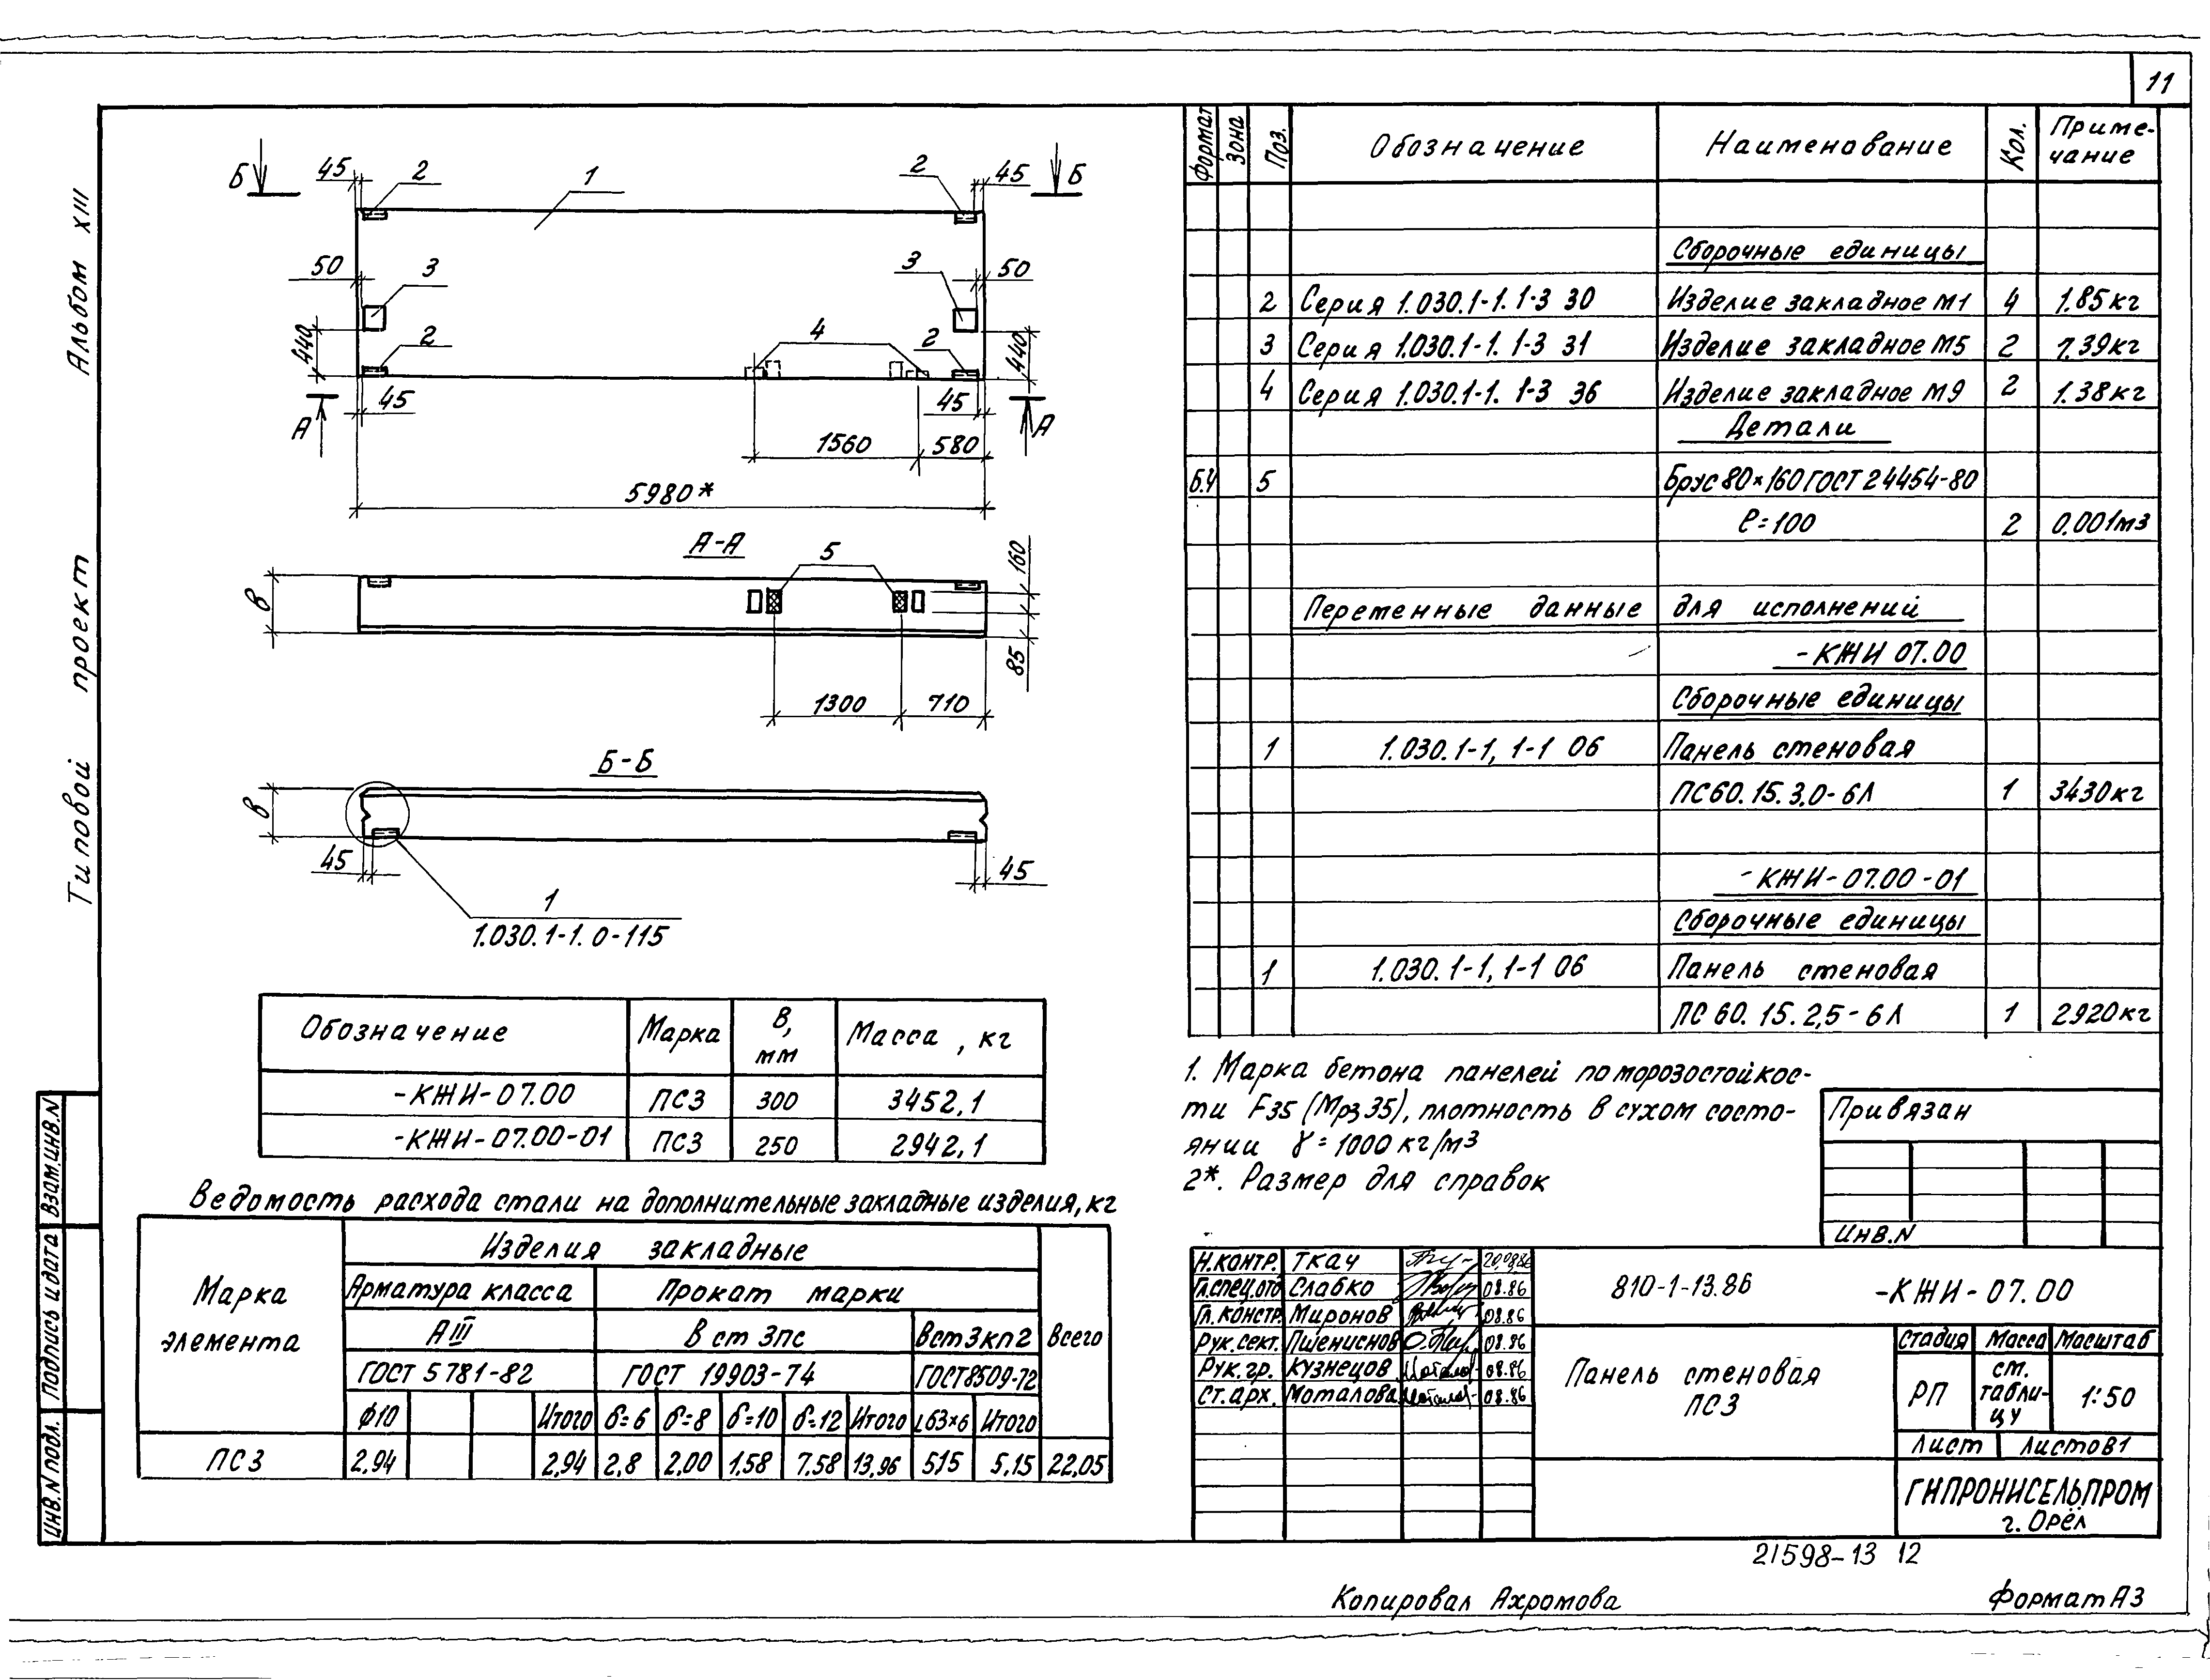 11
Альбом XIII
Типовой проект
Взам.инв.N
Подпись и дата
Инв.N подл.
Б 45 2 1 2 45 Б
50 3 3 50
440 2 4 2 440
А 45 45 А
1560 580
5980*
А-А 5 160
в
85
1300 710
Б-Б
в
45 45
1
1.030.1-1.0-115
Обозначение Марка В, мм Масса, кг
-КЖИ-07.00 ПС3 300 3452,1
-КЖИ-07.00-01 ПС3 250 2942,1
Ведомость расхода стали на дополнительные закладные изделия, кг
Марка элемента Изделия закладные Всего
Арматура класса Прокат марки
АIII В ст 3пс Вст3кп2
ГОСТ 5781-82 ГОСТ 19903-74 ГОСТ 8509-72
ф10 Итого δ=6 δ=8 δ=10 δ=12 Итого L63×6 Итого
ПС3 2,94 2,94 2,8 2,00 1,58 7,58 13,96 5,15 5,15 22,05
Формат Зона Поз. Обозначение Наименование Кол. Примечание
Сборочные единицы
2 Серия 1.030.1-1.1-3 30 Изделие закладное М1 4 1.85кг
3 Серия 1.030.1-1. 1-3 31 Изделие закладное М5 2 7.39кг
4 Серия 1.030.1-1. 1-3 36 Изделие закладное М9 2 1.38кг
Детали
Б.Ч 5 Брус 80×160 ГОСТ 24454-80
ℓ=100 2 0.001м3
Переменные данные для исполнений
-КЖИ 07.00
Сборочные единицы
1 1.030.1-1, 1-1 06 Панель стеновая
ПС60.15.3,0-6Л 1 3430кг
-КЖИ-07.00-01
Сборочные единицы
1 1.030.1-1, 1-1 06 Панель стеновая
ПС 60.15.2,5-6Л 1 2920кг
1. Марка бетона панелей по морозостойкос-
ти F35 (Мрз 35), плотность в сухом состо-
янии γ = 1000 кг/м3
2*. Размер для справок
Привязан
Инв.N
Н.контр. Ткач 20.08.86
Гл.спец.отд Слабко 08.86
Гл.констр. Миронов 08.86
Рук.сект. Пшениснов 08.86
Рук.гр. Кузнецов 08.86
Ст.арх. Моталова 08.86
810-1-13.86 -КЖИ-07.00
Панель стеновая
ПС3
Стадия Масса Масштаб
РП см. табли-
цу 1:50
Лист Листов 1
ГИПРОНИСЕЛЬПРОМ
г. Орёл
21598-13 12
Копировал Ахромова Формат А3